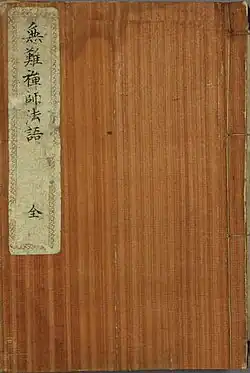 無難禅師法語
全